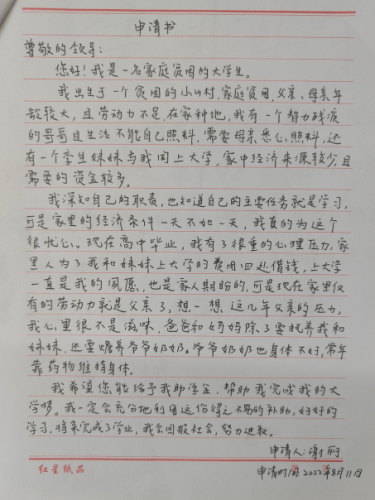 申请书
尊敬的领导:
您好!我是一名家庭贫困的大学生。
我出生于一个贫困的小山村,家庭贫困,父亲、母亲年
龄较大,且劳动力不足,在家种地,我有一个智力残疾
的哥哥且生活不能自己照料,需要母亲悉心照料,还
有一个孪生妹妹与我同上大学,家中经济来源较少,且
需要的资金较多。
我深知自己的职责,也知道自己的主要任务就是学习,
可是家里的经济条件一天不如一天,我真的为这个
很忧心。现在高中毕业,我有了很重的心理压力,家
里人为了我和妹妹上大学的费用四处借钱,上大学
一直是我的夙愿,也是家人期盼的,可是现在家里仅
有的劳动力就是父亲了,想一想这几年父亲的压力,
我心里很不是滋味,爸爸和妈妈除了要抚养我和
妹妹,还要赡养爷爷奶奶。爷爷奶奶也身体不好,常年
靠药物维持身体。
我希望您能给予我助学金,帮助我完成我的大
学梦,我一定会充分地利用这份得之不易的补助,好好的
学习,将来完成了学业,我会回报社会,努力进取。
申请人:谢丽
申请时间 2022年8月11日
红星纸品